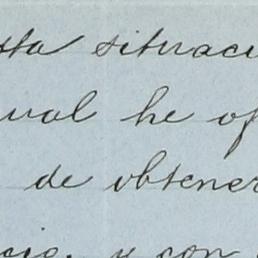 sta situaci
ual he of
de obtener
cio, y con